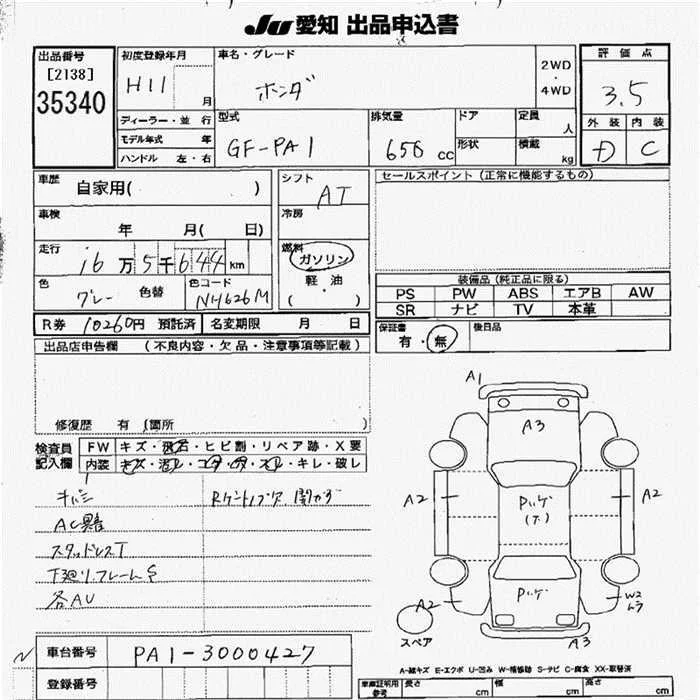 JU 愛知 出品申込書
出品番号
[2138]
35340
初度登録年月
H11 月
ディーラー・並 行
モデル年式 年
ハンドル 左・右
車名・グレード
ホンダ
2WD
・
4WD
評 価 点
3.5
外 装 内 装
D C
型式
GF-PA1
排気量
656 cc
ドア
形状
定員
人
積載
kg
車歴
自家用( )
車検
年 月( 日)
走行
16万5千644km
色
グレー 色替
色コード
NH626M
シフト
AT
冷房
燃料
ガソリン
軽・油
( )
セールスポイント(正常に機能するもの)
装備品(純正品に限る)
PS PW ABS エアB AW
SR ナビ TV 本革
保証書
有・無
後日品
R券 10260円 預託済 名変期限 月 日
出品店申告欄 (不良内容・欠品・注意事項等記載)
修復歴 有(箇所 )
検査員
記入欄
FW キズ・飛石・ヒビ割・リペア跡・X要
内装 キズ・汚レ・コゲ・穴・スレ・キレ・破レ
キバミ
AC異音
スタッドレスT
下廻リ.フレームS
各AU
A1
A3
A2
A2
Pいケ
(ア.)
Pいケ
A2
W2
ムラ
A3
スペア
A-線キズ E-エクボ U-凹み W-補修跡 S-サビ C-腐食 XX-取替済
N 車台番号 PA1-3000427
登録番号
車庫証明用
参考
長さ cm
幅 cm
高さ cm